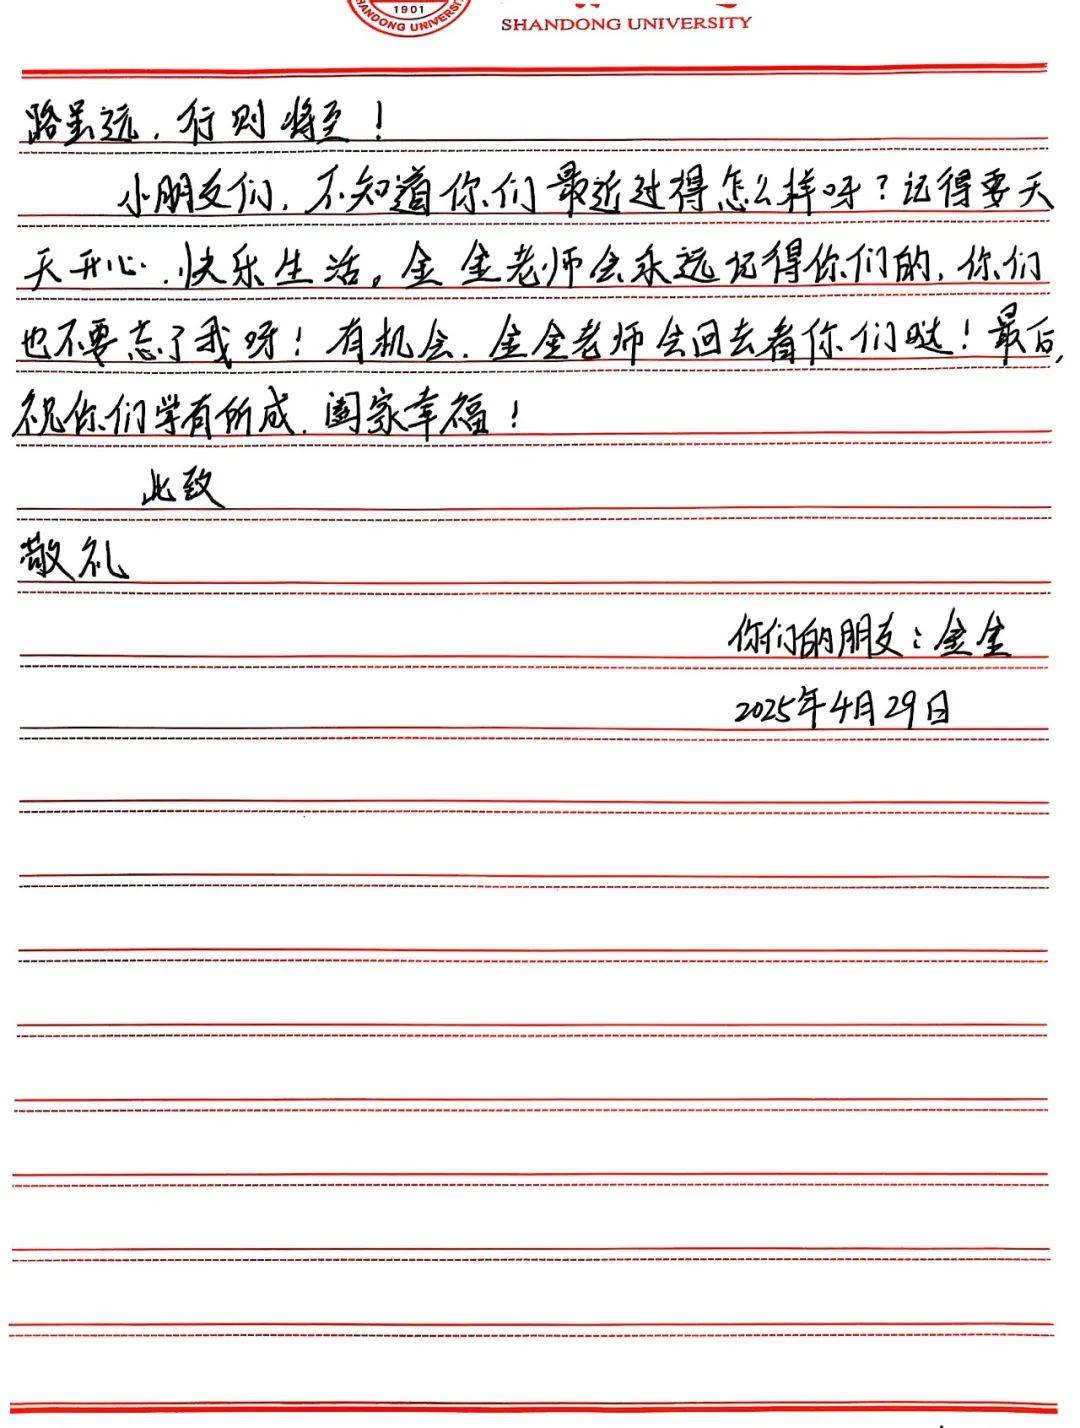 1901
SHANDONG UNIVERSITY
SHANDONG UNIVERSITY
路虽远，行则将至！
小朋友们，不知道你们最近过得怎么样呀？记得要天
天开心，快乐生活。金金老师会永远记得你们的，你们
也不要忘了我呀！有机会，金金老师会回去看你们哒！最后，
祝你们学有所成，阖家幸福！
此致
敬礼
你们的朋友：金金
2025年4月29日